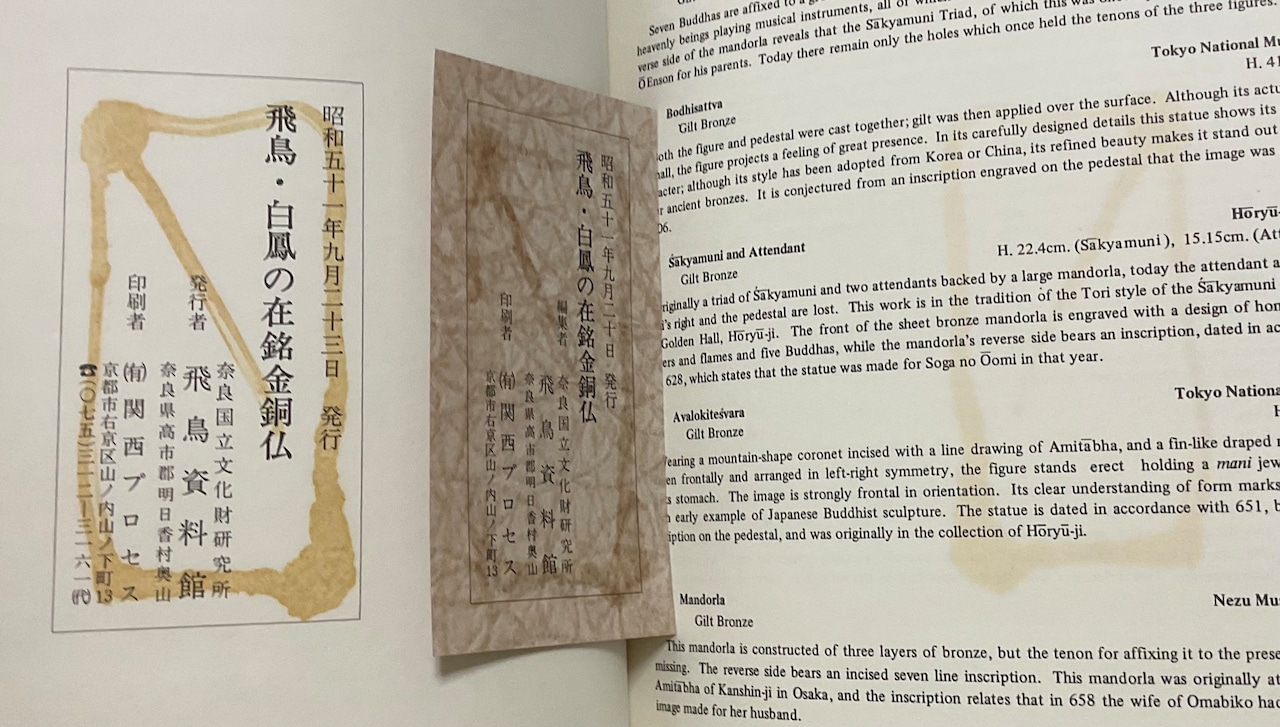 昭和五十一年九月二十三日 発行
飛鳥・白鳳の在銘金銅仏
奈良国立文化財研究所
発行者 飛鳥資料館
奈良県高市郡明日香村奥山
印刷者 ㈲関西プロセス
京都市右京区山ノ内山ノ下町13
☎(〇七五)三一二―三一六一㈹
昭和五十一年九月二十日 発行
飛鳥・白鳳の在銘金銅仏
奈良国立文化財研究所
編集者 飛鳥資料館
奈良県高市郡明日香村奥山
印刷者 ㈲関西プロセス
京都市右京区山ノ内山ノ下町13
Seven Buddhas are affixed to a
heavenly beings playing musical instruments, all of
verse side of the mandorla reveals that the Śākyamuni Triad, of which this was
ŌEnson for his parents. Today there remain only the holes which once held the tenons of the three figures.
Tokyo National Mu
H. 41
Bodhisattva
Gilt Bronze
oth the figure and pedestal were cast together; gilt was then applied over the surface. Although its actu
all, the figure projects a feeling of great presence. In its carefully designed details this statue shows its
acter; although its style has been adopted from Korea or China, its refined beauty makes it stand out
r ancient bronzes. It is conjectured from an inscription engraved on the pedestal that the image was
06.
Hōryū-
Śākyamuni and Attendant
H. 22.4cm. (Śākyamuni), 15.15cm. (Att
Gilt Bronze
riginally a triad of Śākyamuni and two attendants backed by a large mandorla, today the attendant a
i's right and the pedestal are lost. This work is in the tradition of the Tori style of the Śākyamuni
Golden Hall, Hōryū-ji. The front of the sheet bronze mandorla is engraved with a design of hon
ers and flames and five Buddhas, while the mandorla's reverse side bears an inscription, dated in ac
628, which states that the statue was made for Soga no Ōomi in that year.
Tokyo Nationa
H
Avalokiteśvara
Gilt Bronze
earing a mountain-shape coronet incised with a line drawing of Amitābha, and a fin-like draped
en frontally and arranged in left-right symmetry, the figure stands erect holding a mani jew
s stomach. The image is strongly frontal in orientation. Its clear understanding of form marks
early example of Japanese Buddhist sculpture. The statue is dated in accordance with 651, b
iption on the pedestal, and was originally in the collection of Hōryū-ji.
Nezu Mu
Mandorla
Gilt Bronze
This mandorla is constructed of three layers of bronze, but the tenon for affixing it to the prese
missing. The reverse side bears an incised seven line inscription. This mandorla was originally at
Amitābha of Kanshin-ji in Osaka, and the inscription relates that in 658 the wife of Omabiko had
image made for her husband.